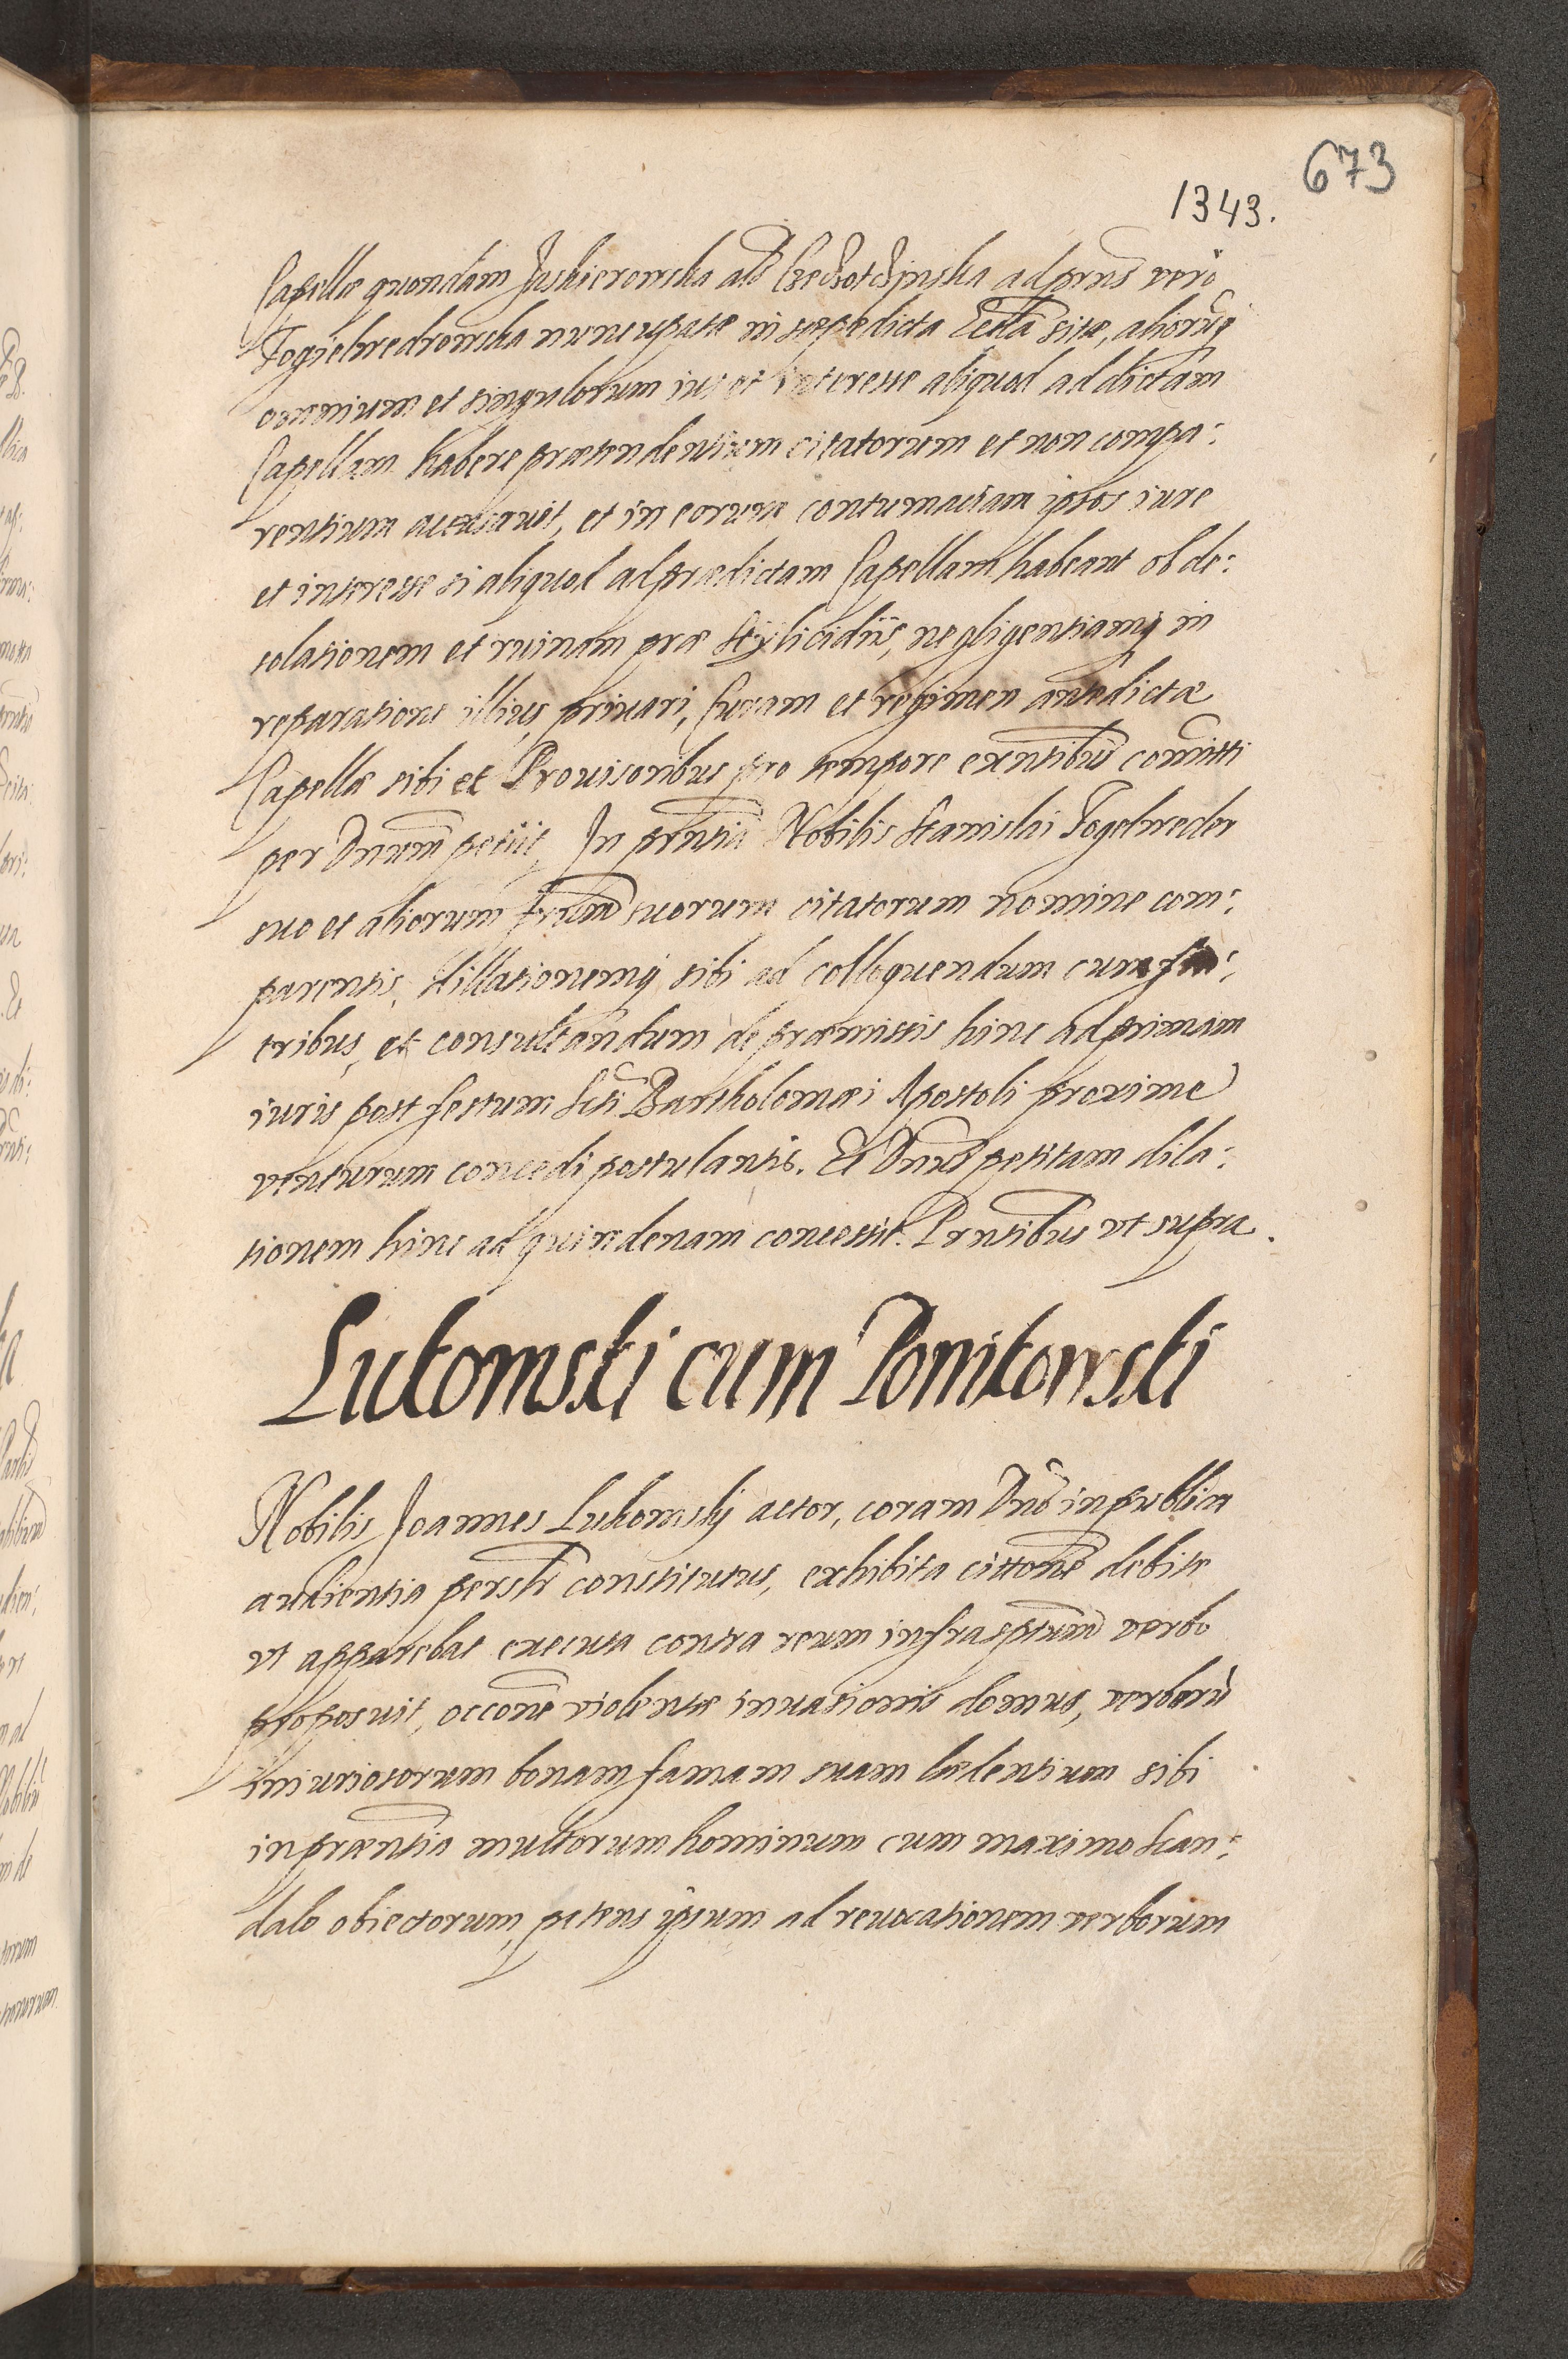 673
1343.
Capellæ quondam Juskierowska als adprns vero
Fogielwedrowska nuncupatæ in sæpedicta Eccla sitæ, aliorumq
omnium et singulorum ius et interesse aliquod ad dictam
Capellam habere prætendentium citatorum et non compa:
rentium accusavit, et in eorum contumaciam ipsos iure
et interesse si aliquod ad prædictam Capellam habeant ob de:
solationem et ruinam præ stylicidiis, negligentiamq in
reparatione illius, privari, Curam et regimen antedictæ
Capellæ sibi et Provisoribus pro tempore exntibus comitti
per Dnum petiit, In prntia Nobilis Stanislai Fogelweder
suo et aliorum frum suorum citatorum nomine com:
parentis, dillationemq sibi ad colloquendum cum fra:
tribus, et consultandum de præmissis hinc ad primam
iuris post festum Scti Bartholomæi Apostoli proxime
venturum concedi postulantis. Et Dnus petitam dila:
tionem hinc ad quindenam concessit. Prntibus vt supra.
Lutomski cum Ponitowski
Nobilis Joannes Luthomskj actor, coram Dno in publica
audientia persłr constitutus, exhibita cittone debite
vt apparebat executa contra reum infrasptum verbo
proposuit, occone violentæ invasionis domus, verborū
iniuriosorum bonam famam suam lædentium sibi
in præntia multorum hominum cum maximo scan:
dalo obiectorum, petens ipsum ad revocationem verborum